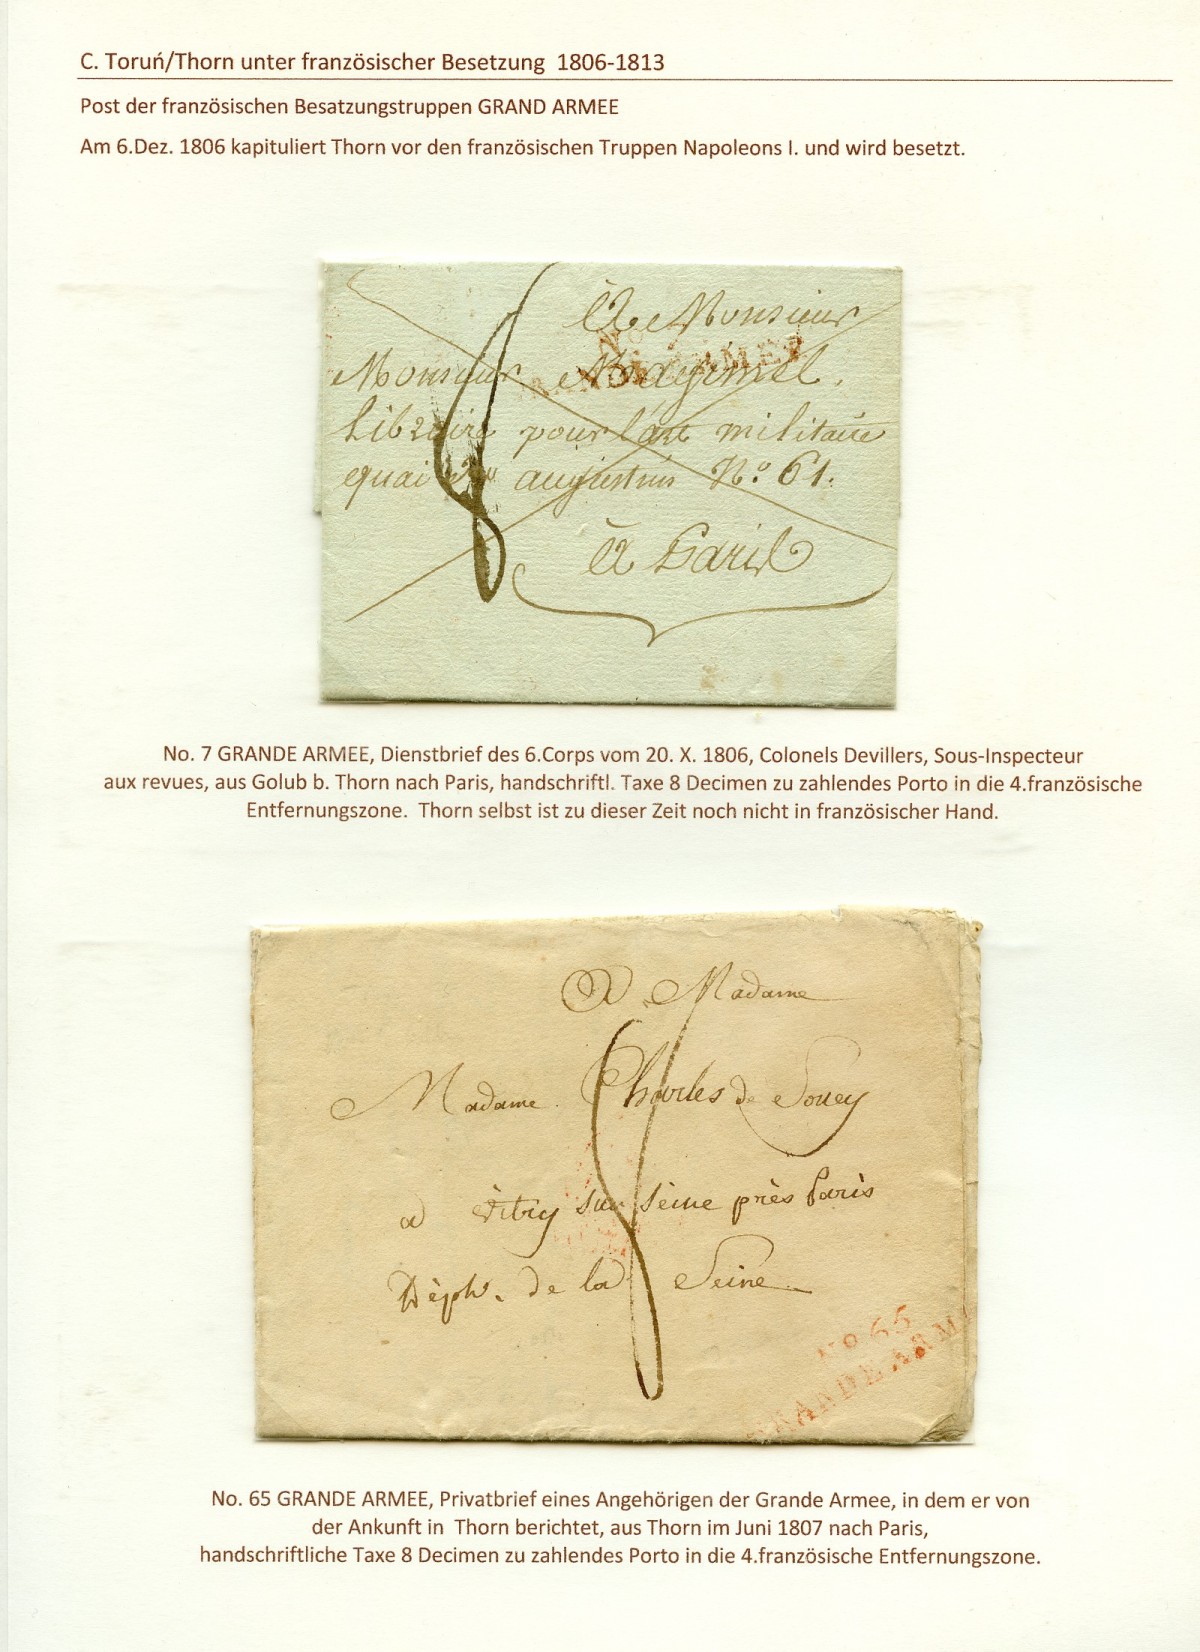 C. Toruń/Thorn unter französischer Besetzung 1806-1813
Post der französischen Besatzungstruppen GRAND ARMEE
Am 6.Dez. 1806 kapituliert Thorn vor den französischen Truppen Napoleons I. und wird besetzt.
A Monsieur
No
ARMEE
Monsieur
Libraire pour l'art militaire
quai augustins No. 61.
A Paris
8
No. 7 GRANDE ARMEE, Dienstbrief des 6.Corps vom 20. X. 1806, Colonels Devillers, Sous-Inspecteur
aux revues, aus Golub b. Thorn nach Paris, handschriftl. Taxe 8 Decimen zu zahlendes Porto in die 4.französische
Entfernungszone. Thorn selbst ist zu dieser Zeit noch nicht in französischer Hand.
A Madame
Madame Charles de
a vitry sur seine près Paris
de la Seine
8
No 65
GRANDE ARM
No. 65 GRANDE ARMEE, Privatbrief eines Angehörigen der Grande Armee, in dem er von
der Ankunft in Thorn berichtet, aus Thorn im Juni 1807 nach Paris,
handschriftliche Taxe 8 Decimen zu zahlendes Porto in die 4.französische Entfernungszone.